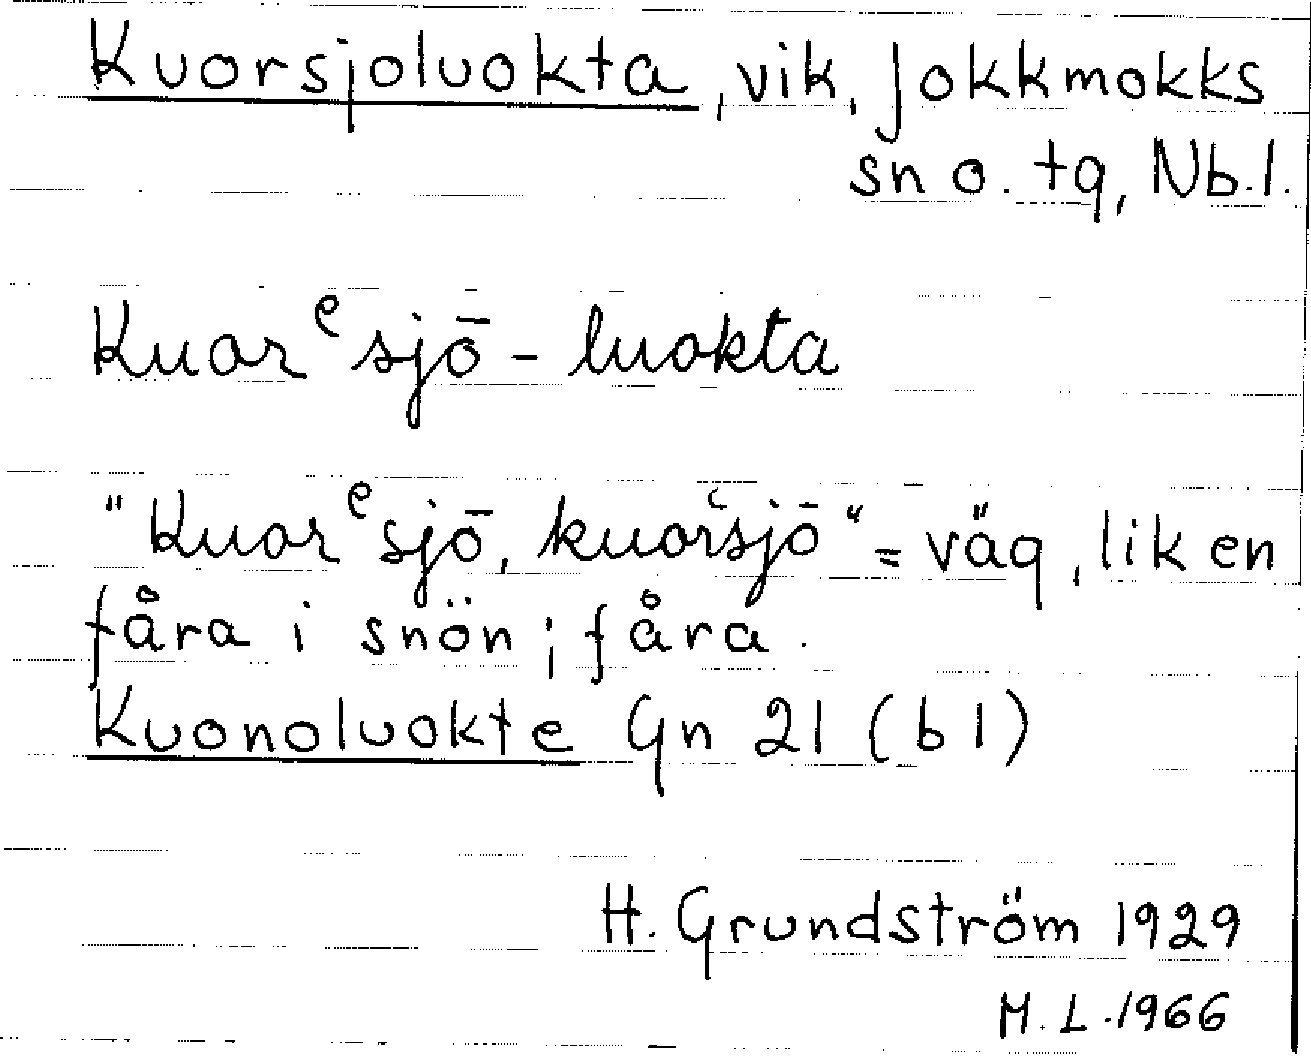 Kuorsjoluokta, vik, Jokkmokks
sn o. tg, Nb.l.
Kuorᵉsjō-luokta
"Kuorᵉsjō, kuoŕsjō" = väg, lik en
fåra i snön; fåra.
Kuonoluokte Gn 21 (b1)
H. Grundström 1929
M.L. 1966